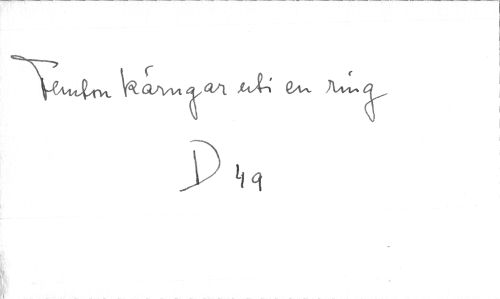 Femton kärngar uti en ring
D 49